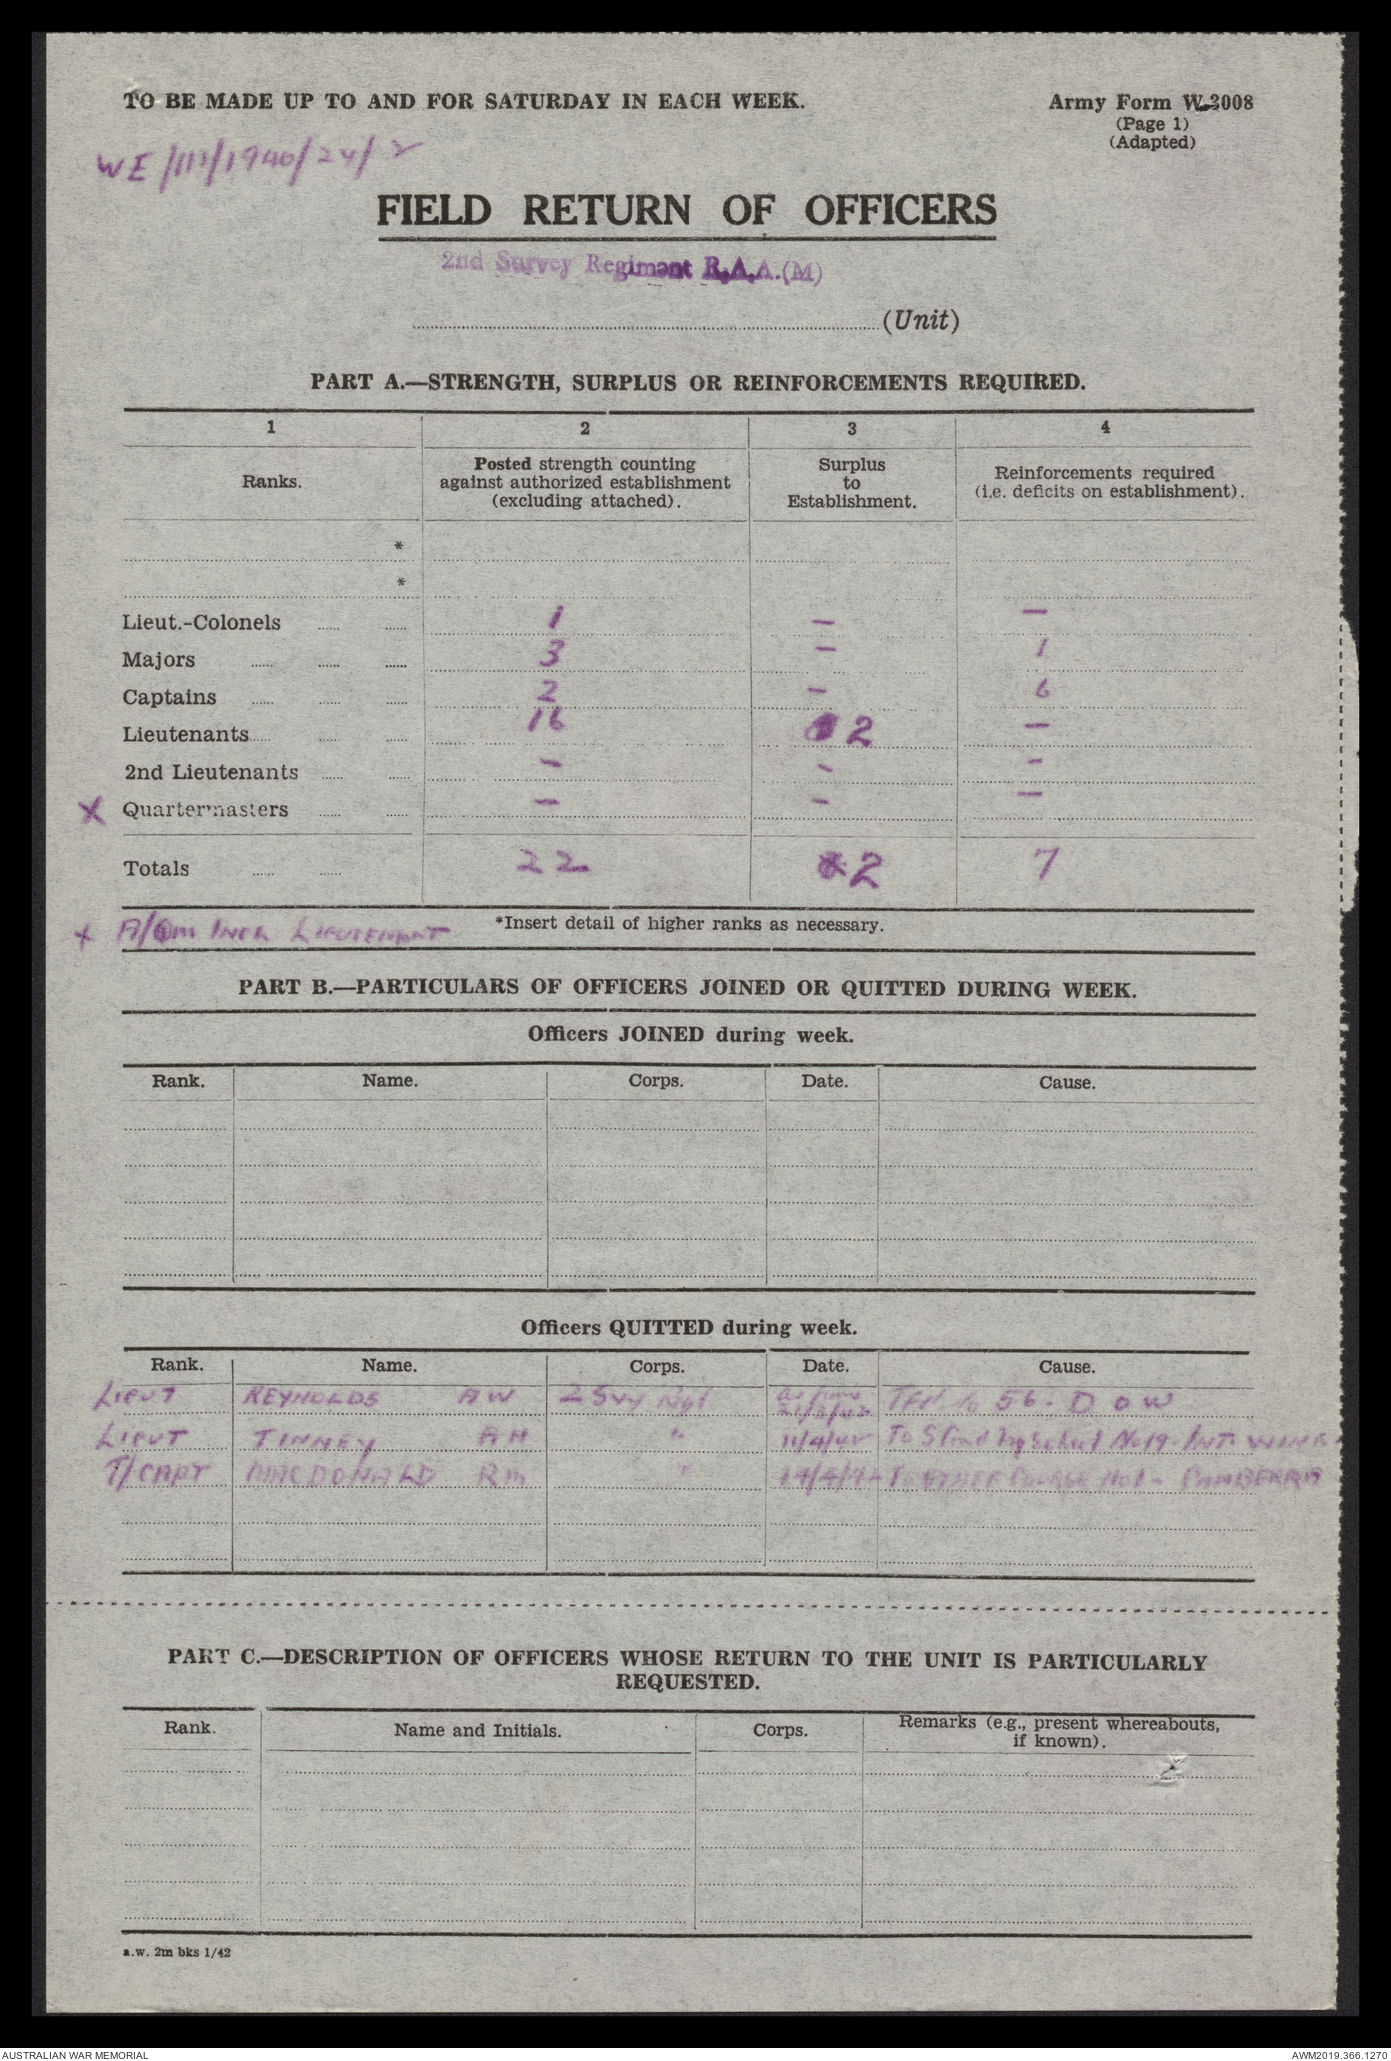 TO BE MADE UP TO AND FOR SATURDAY IN EACH WEEK.
Army Form W.3008
(Page 1)
(Adapted)
WE/111/1940/24/2
FIELD RETURN OF OFFICERS
2nd Survey Regiment R.A.A.(M)
(Unit)
PART A.—STRENGTH, SURPLUS OR REINFORCEMENTS REQUIRED.
1 2 3 4
Ranks. Posted strength counting against authorized establishment (excluding attached). Surplus to Establishment. Reinforcements required (i.e. deficits on establishment).
*
*
Lieut.-Colonels 1 — —
Majors 3 — 1
Captains 2 — 6
Lieutenants 16 2 —
2nd Lieutenants — — —
X Quartermasters — — —
Totals 22 2 7
x A/Qm Incl Lieutenant
*Insert detail of higher ranks as necessary.
PART B.—PARTICULARS OF OFFICERS JOINED OR QUITTED DURING WEEK.
Officers JOINED during week.
Rank. Name. Corps. Date. Cause.
Officers QUITTED during week.
Rank. Name. Corps. Date. Cause.
LIEUT REYNOLDS A W 2 Svy Rgt to 56. D O W
LIEUT TINNEY A H " 11/4/42 To School No 19 - INT. WING
T/CAPT MACDONALD R m " 14/4/42 No 1 - CANBERRA
PART C.—DESCRIPTION OF OFFICERS WHOSE RETURN TO THE UNIT IS PARTICULARLY
REQUESTED.
Rank. Name and Initials. Corps. Remarks (e.g., present whereabouts, if known).
a.w. 2m bks 1/42
AUSTRALIAN WAR MEMORIAL
AWM2019.366.1270